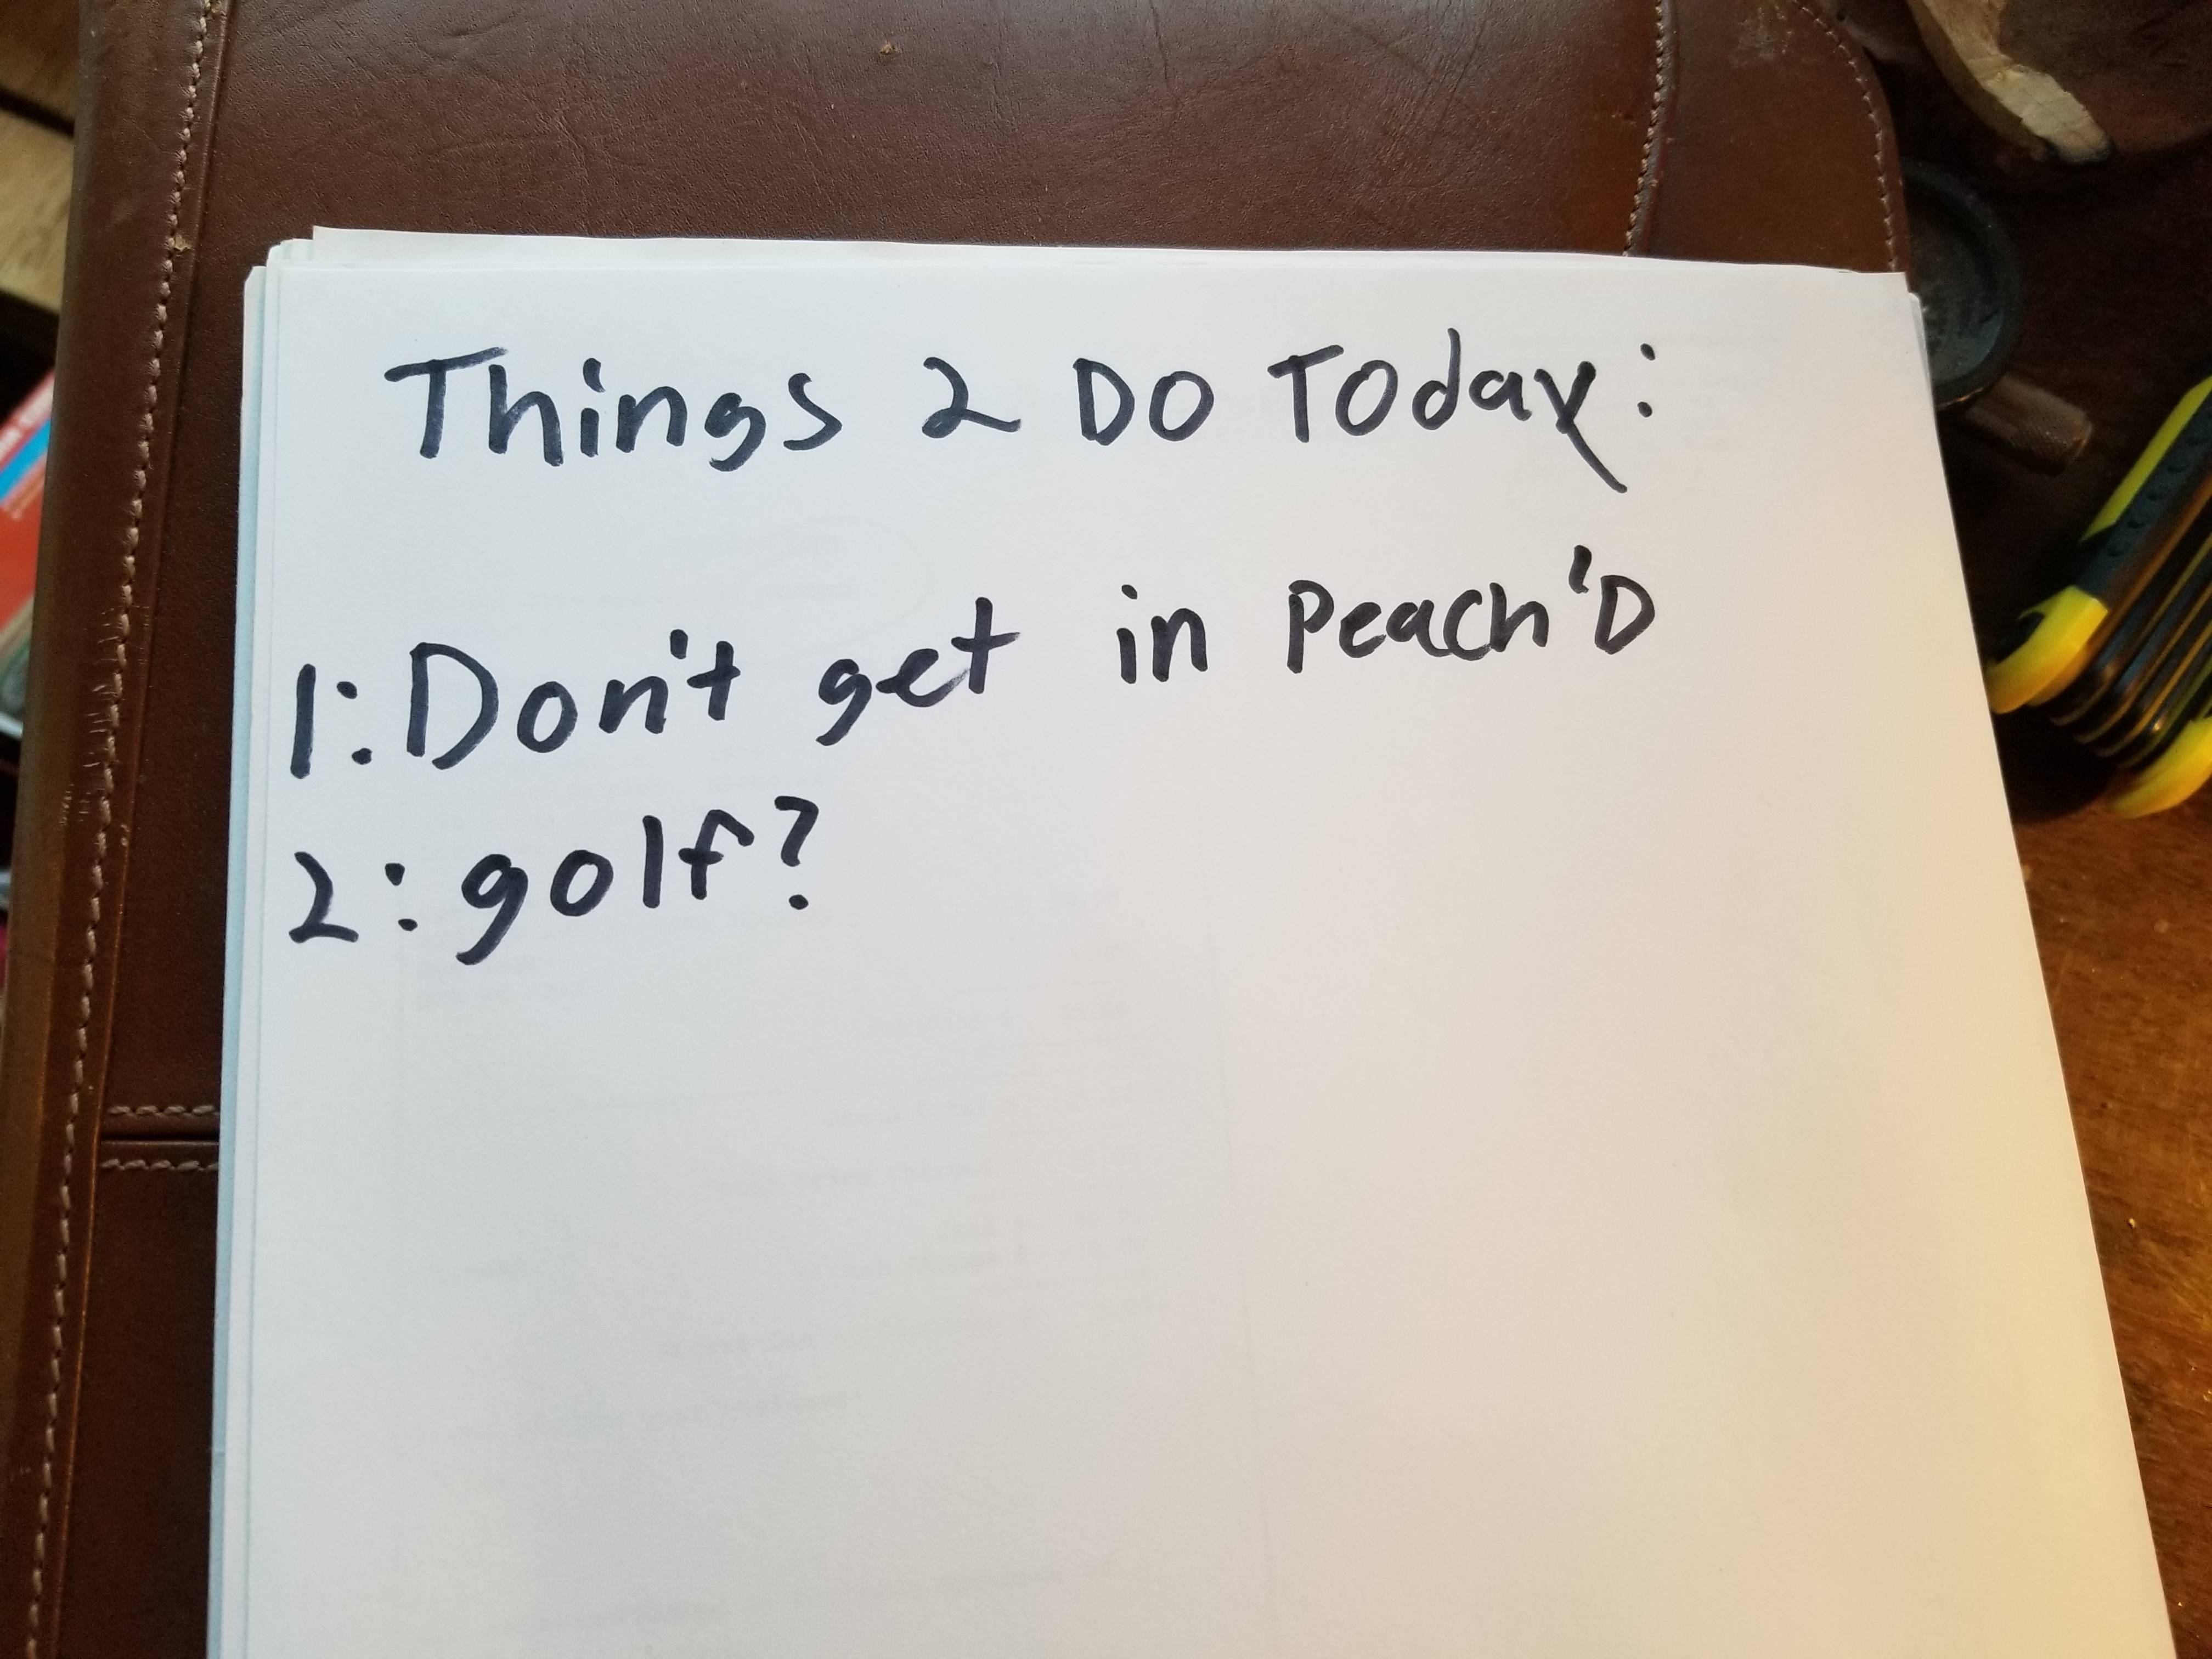 Things 2 DO TOday:
1: Don't get in peach'D
2: golf?